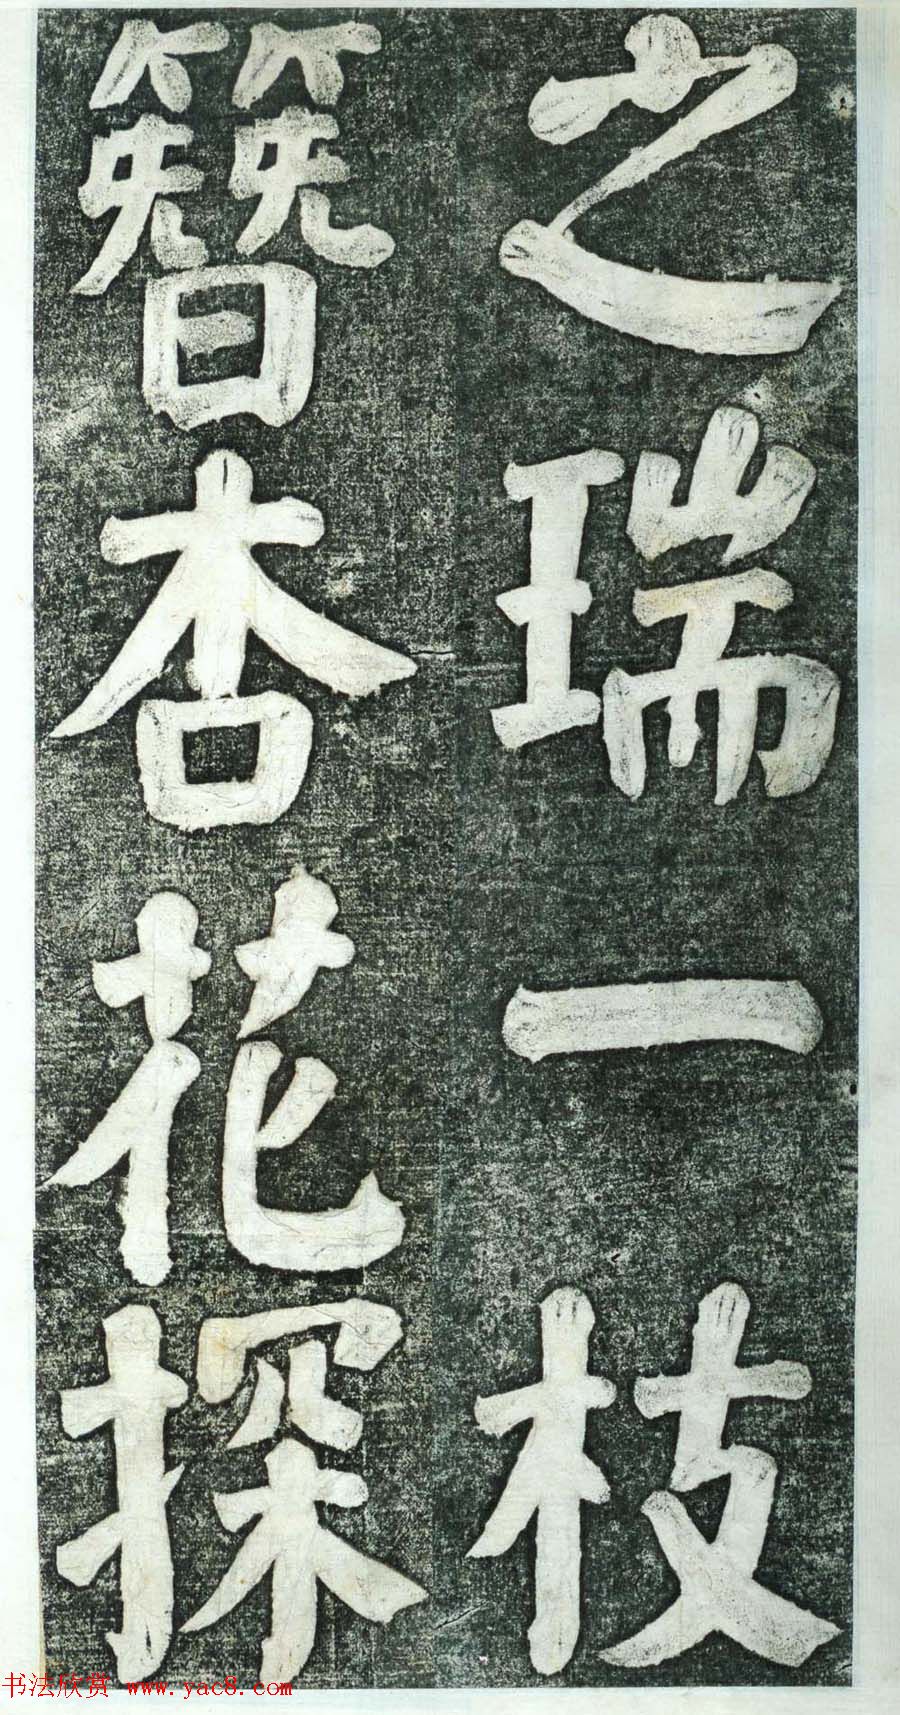 之瑞一枝
簪杏花探
书法欣赏 www.yac8.com